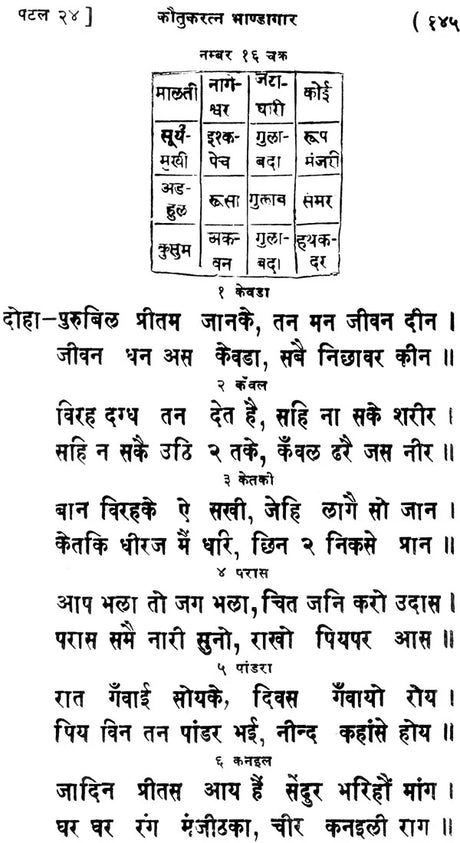 पटल २४ ] कौतुकरत्न भाण्डागार ( १४५
नम्बर १६ चक्र
मालती नागे- जटा- कोई
श्वर धारी
सूर्य- इश्क- गुला- रूप
मुखी पेच बदा मंजरी
अड- रूसा गुलाब संमर
हुल
कुसुम अक- गुला- हथक-
वन बदा दर
१ केवडा
दोहा-पुरुबिल प्रीतम जानके, तन मन जीवन दीन ।
जीवन धन अस केवडा, सबै निछावर कीन ॥
२ कँवल
विरह दग्ध तन देत है, सहि ना सके शरीर ।
सहि न सकै उठि २ तके, कँवल ढरै जस नीर ॥
३ केतकी
बान विरहके ऐ सखी, जेहि लागै सो जान ।
केतकि धीरज मैं धरि, छिन २ निकसे प्रान ॥
४ परास
आप भला तो जग भला, चित जनि करो उदास ।
परास समै नारी सुनो, राखो पियपर आस ॥
५ पांडरा
रात गँवाई सोयके, दिवस गँवायो रोय ।
पिय विन तन पांडर भई, नीन्द कहांसे होय ॥
६ कनइल
जादिन प्रीतस आय हैं सेंदुर भरिहौं मांग ।
घर घर रंग मंजीठका, चीर कनइली राग ॥